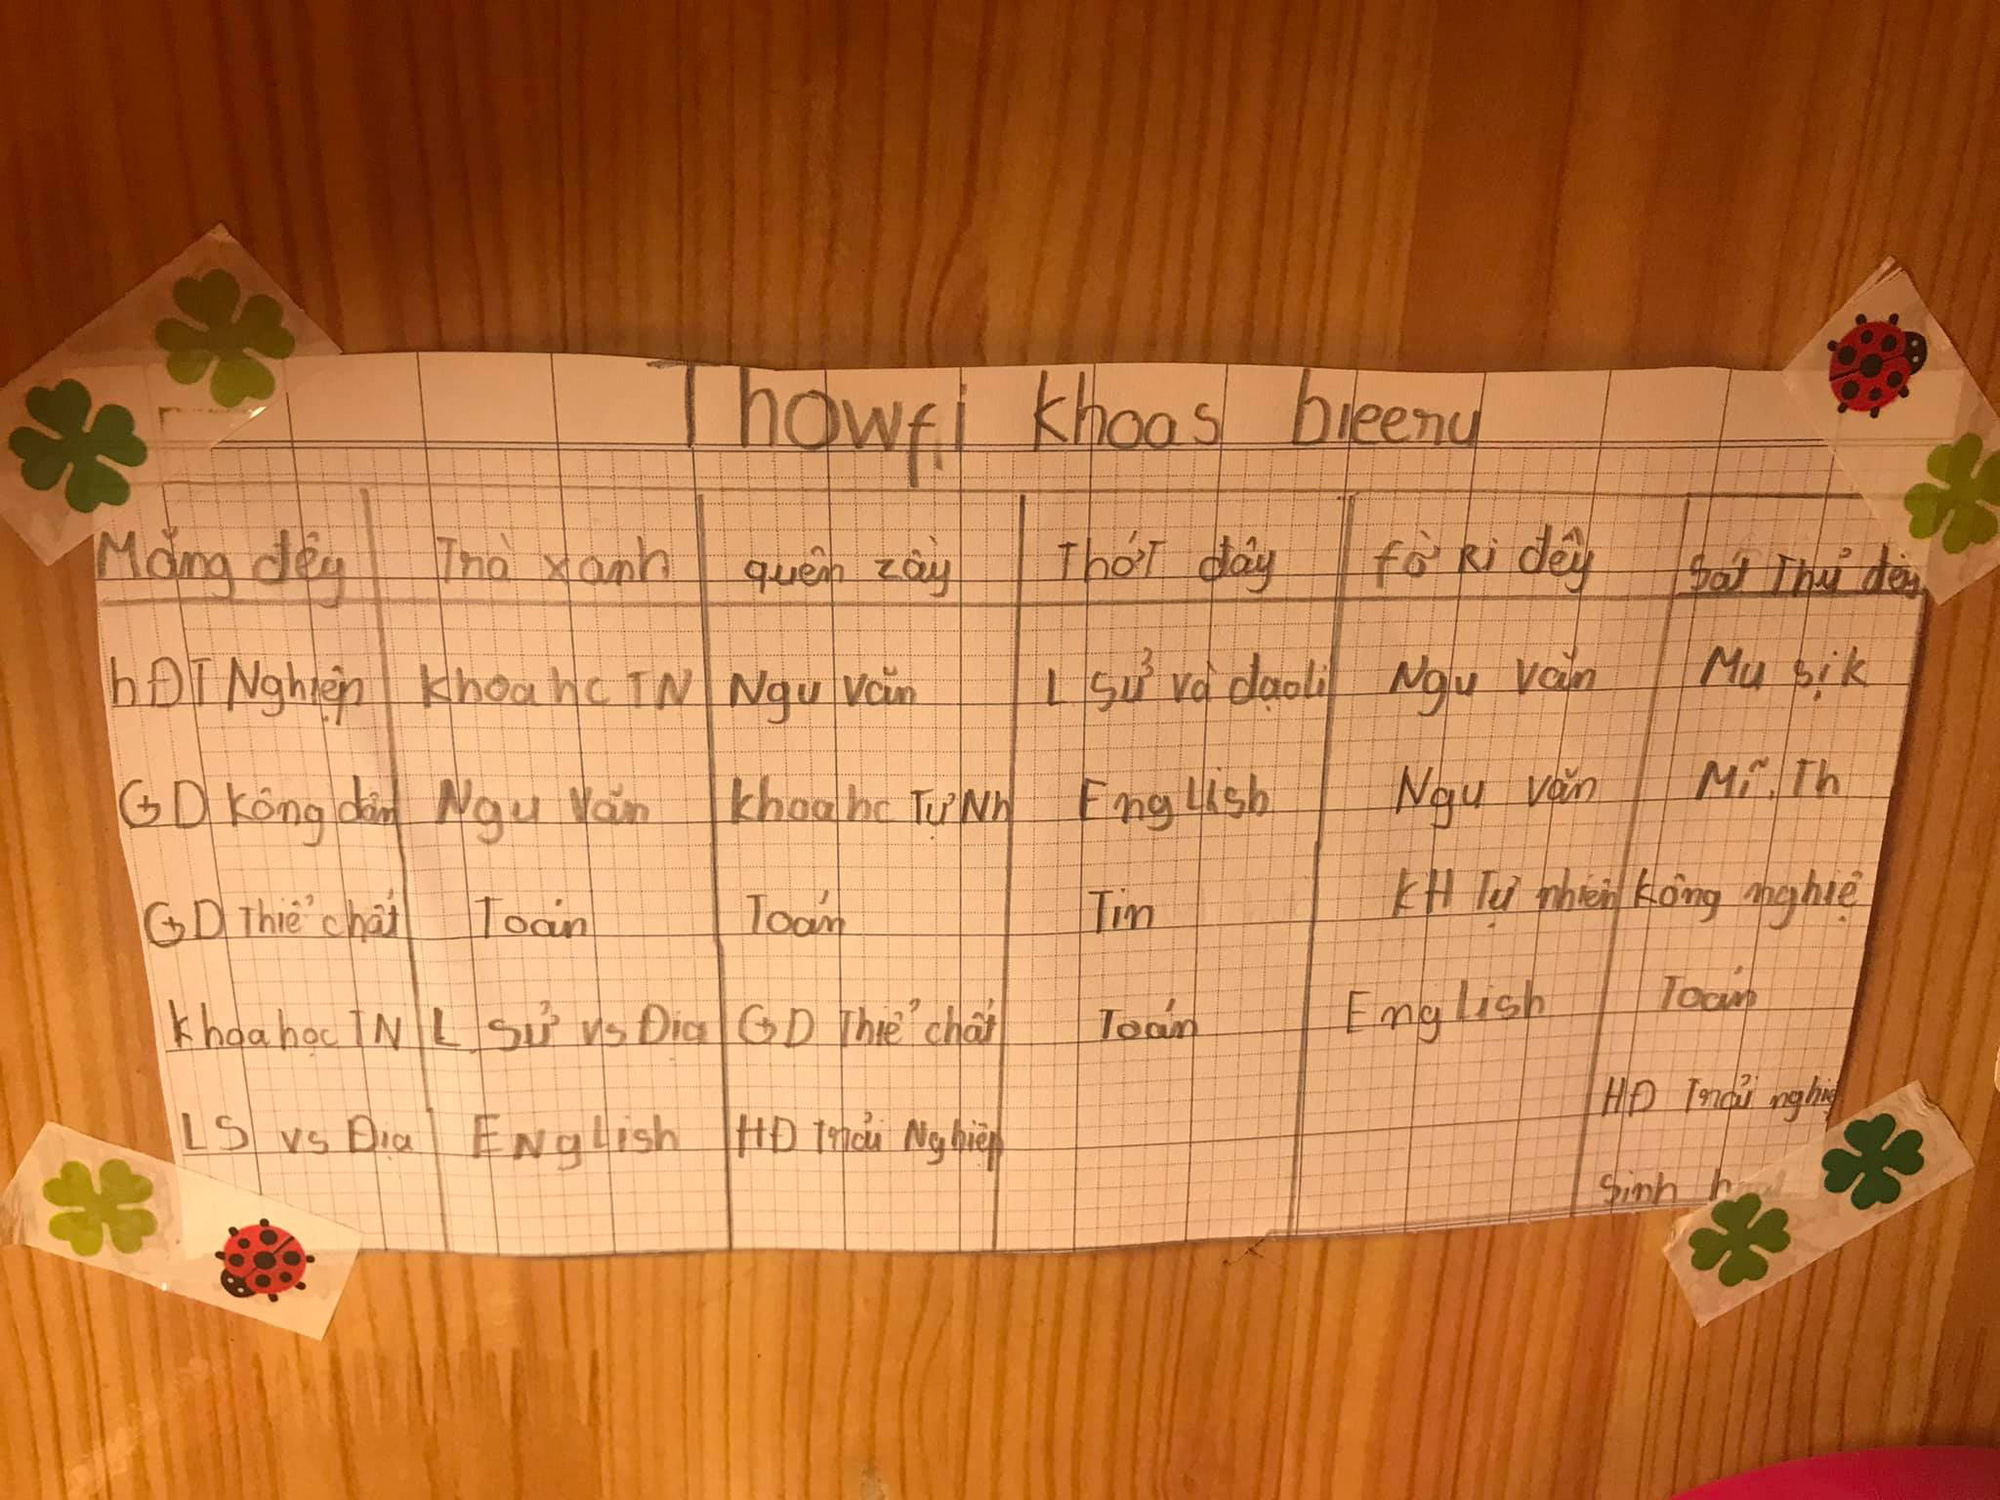 Thowfi khoas bieeru
Mắng đêy Trà xanh quên zầy Thớt đây fò Ri đêy Sát Thủ đêy
hĐT Nghiệp Khoa hc TN Ngu văn L Sử và dạoli Ngu văn Mu sịk
GD Kông dân Ngu Văn Khoa hc Tự Nh English Ngu văn Mĩ. Th
GD Thiể chất Toán Toán Tin KH Tự nhiên Kông nghiệ
Khoa học TN L Sử vs Địa GD Thiể chất Toán English Toán
LS vs Địa ENglish HĐ trải Nghiệp HĐ Trải nghiệ
Sinh